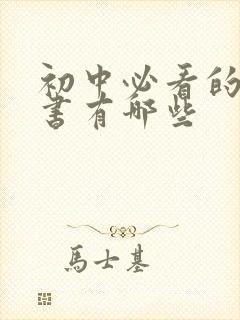 初中必看的
書有哪些
馬士基